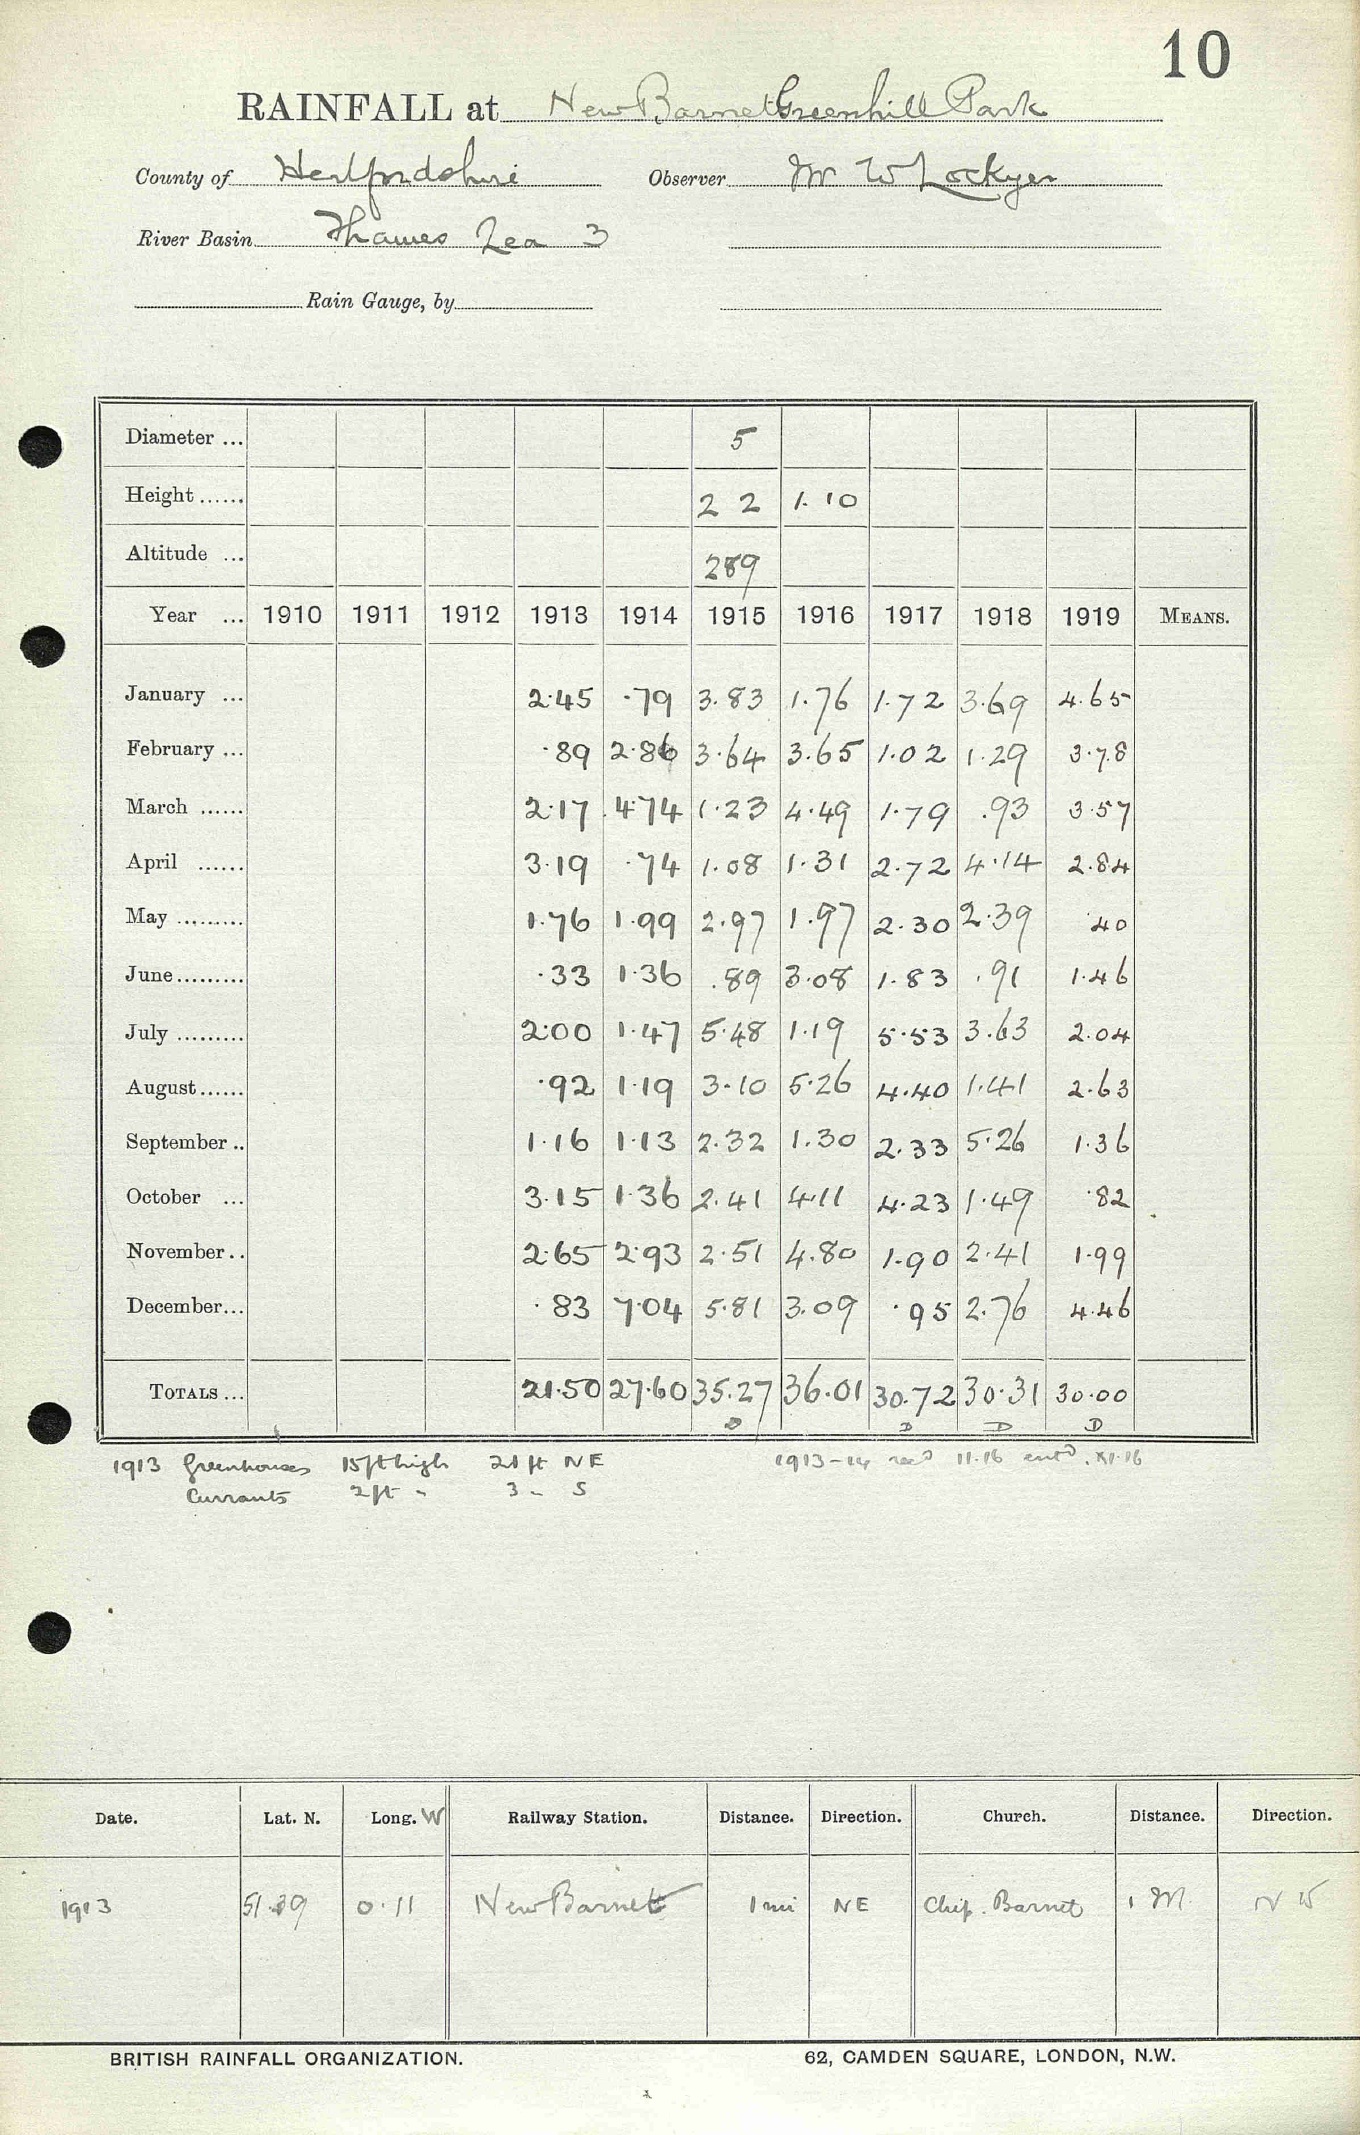 10
RAINFALL at New Barnet Greenhill Park
County of Hertfordshire Observer Mr W Lockyer
River Basin Thames Lea 3
Rain Gauge, by
Diameter ... 5
Height ...... 2 2 1.10
Altitude ... 289
Year ... 1910 1911 1912 1913 1914 1915 1916 1917 1918 1919 MEANS.
January ... 2.45 .79 3.83 1.76 1.72 3.69 4.65
February ... .89 2.86 3.64 3.65 1.02 1.29 3.78
March ...... 2.17 4.74 1.23 4.49 1.79 .93 3.57
April ...... 3.19 .74 1.08 1.31 2.72 4.14 2.84
May ......... 1.76 1.99 2.97 1.97 2.30 2.39 .40
June......... .33 1.36 .89 3.08 1.83 .91 1.46
July ......... 2.00 1.47 5.48 1.19 5.53 3.63 2.04
August...... .92 1.19 3.10 5.26 4.40 1.41 2.63
September .. 1.16 1.13 2.32 1.30 2.33 5.26 1.36
October ... 3.15 1.36 2.41 4.11 4.23 1.49 .82
November .. 2.65 2.93 2.51 4.80 1.90 2.41 1.99
December... .83 7.04 5.81 3.09 .95 2.76 4.46
TOTALS ... 21.50 27.60 35.27 36.01 30.72 30.31 30.00
D D D D
1913 Greenhouses 15ft high 21 ft NE 1913-14 recd 11.16 entd. XI.16
Currants 2ft " 3 " S
Date. Lat. N. Long. W Railway Station. Distance. Direction. Church. Distance. Direction.
1913 51.39 0.11 New Barnet 1 mi NE Chip. Barnet 1 M. N W
BRITISH RAINFALL ORGANIZATION. 62, CAMDEN SQUARE, LONDON, N.W.